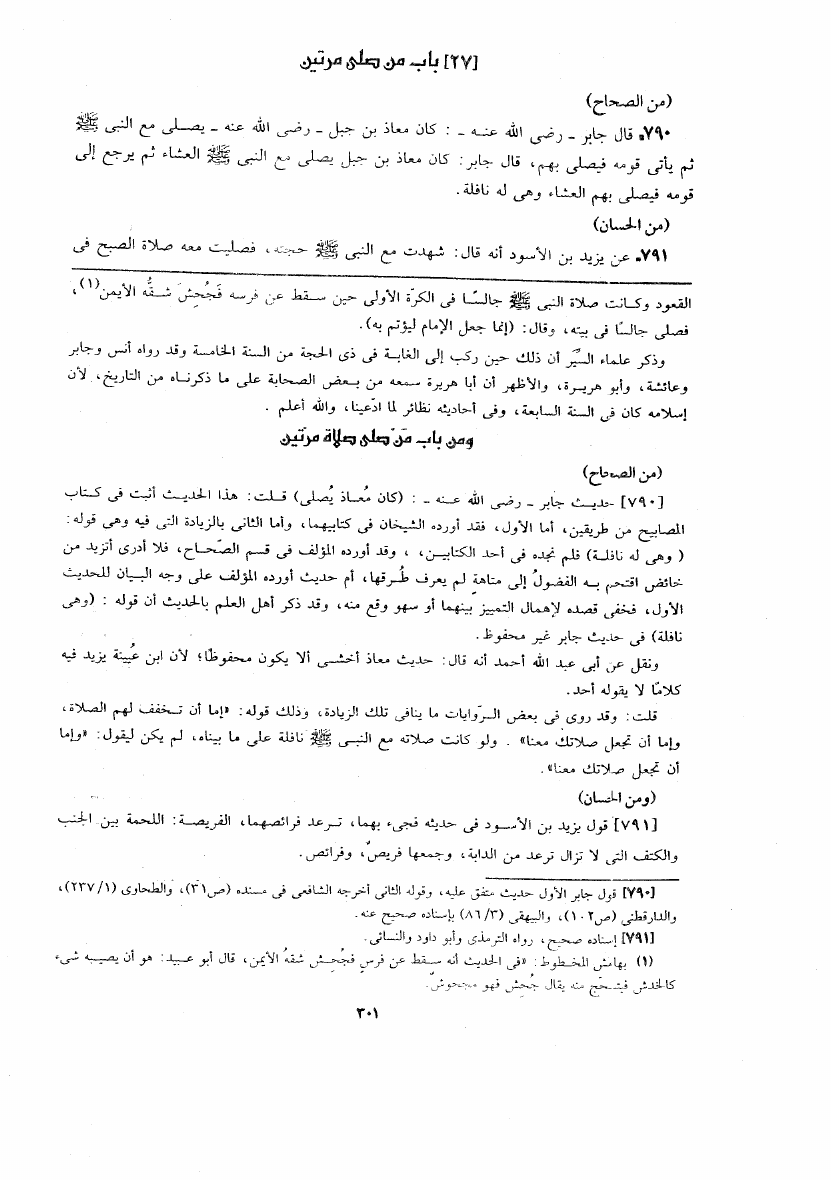 [٢٧] باب من صلى مرتين
(من الصحاح)
٧٩٠. قال جابر ـ رضى الله عنـه ـ : كان معاذ بن جبل ـ رضى الله عنه ـ يصـلى مع النبى ﷺ
ثم يأتى قومه فيصلى بهم، قال جابر: كان معاذ بن جبل يصلى مع النبى ﷺ العشاء ثم يرجع إلى
قومه فيصلى بهم العشاء وهى له نافلة.
(من الحسان)
٧٩١. عن يزيد بن الأسود أنه قال: شهدت مع النبى ﷺ حجته، فصليت معه صلاة الصبح فى
القعود وكـانت صلاة النبى ﷺ جالسًـا فى الكرّة الأولى حين سـقط عن فرسه فَجُحِشَ شـقُّه الأيمن(١)،
فصلى جالسًا فى بيته، وقال: (إنما جعل الإمام ليؤتم به).
وذكر علماء السيَّر أن ذلك حين ركب إلى الغابـة فى ذى الحجة من السنة الخامسة وقد رواه أنس وجابر
وعائشة، وأبو هريـرة، والأظهر أن أبا هريرة سمعه من بـعض الصحابة على ما ذكرنـاه من التاريخ، لأن
إسلامه كان فى السنة السابعة، وفى أحاديثه نظائر لما ادّعينا، والله أعلم .
ومن باب مَنْ صلى صلاة مرّتين
(من الصحاح)
[٧٩٠] حديـث جابر ـ رضى الله عـنـه ـ : (كان مُعـاذ يُصلى) قـلت: هذا الحديـث أثبت فى كـتاب
المصابيح من طريقين، أما الأول، فقد أورده الشيخان فى كتابيهما، وأما الثانى بالزيادة التى فيه وهى قوله:
( وهى له نافلـة) فلم نجده فى أحد الكتابيـن، ، وقد أورده المؤلف فى قسم الصّحـاح، فلا أدرى أتزيد من
خائض اقتحم بـه الفضولُ إلى متاهةٍ لم يعرف طُـرقها، أم حديث أورده المؤلف على وجه البـيان للحديث
الأول، فخفى قصده لإهمال التمييز بينهما أو سهو وقع منه، وقد ذكر أهل العلم بالحديث أن قوله : (وهى
نافلة) فى حديث جابر غير محفوظ.
ونقل عن أبى عبد الله أحمد أنه قال: حديث معاذ أخشـى ألا يكون محفوظًا؛ لأن ابن عُيينة يزيد فيه
كلامًا لا يقوله أحد.
قلت: وقد روى فى بعض الـرّوايات ما ينافى تلك الزيادة، وذلك قوله: «إما أن تـخفف لهم الصلاة،
وإما أن تجعل صلاتك معنا» . ولو كانت صلاته مع النبـى ﷺ نافلة على ما بيناه، لم يكن ليقول: «وإما
أن تجعل صلاتك معنا».
(ومن الحسان)
[٧٩١] قول يزيد بن الأسـود فى حديثه فجىء بهما، تـرعد فرائصهما، الفريصـة: اللحمة بين الجنب
والكتف التى لا تزال ترعد من الدابة، وجمعها فريصٌ، وفرائص.
[٧٩٠] قول جابر الأول حديث متفق عليه، وقوله الثانى أخرجه الشافعى فى مسنده (ص٣١)، والطحاوى (٢٣٧/١)،
والدارقطنى (ص١٠٢)، والبيهقى (٨٦/٣) بإسناده صحيح عنه.
[٧٩١] إسناده صحيح، رواه الترمذى وأبو داود والنسائى.
(١) بهامش المخطوط: «فى الحديث أنه سقط عن فرس فجُحِش شقهُ الأيمن، قال أبو عبيد: هو أن يصيبه شىء
كالخدش فيتسحّج منه يقال جُحِش فهو مجحوش.
٣٠١